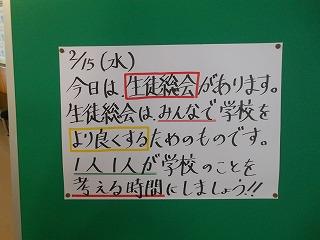 2/15 (水)
今日は、生徒総会があります。
生徒総会は、みんなで学校を
より良くするためのものです。
1人1人が学校のことを
考える時間にしましょう!!